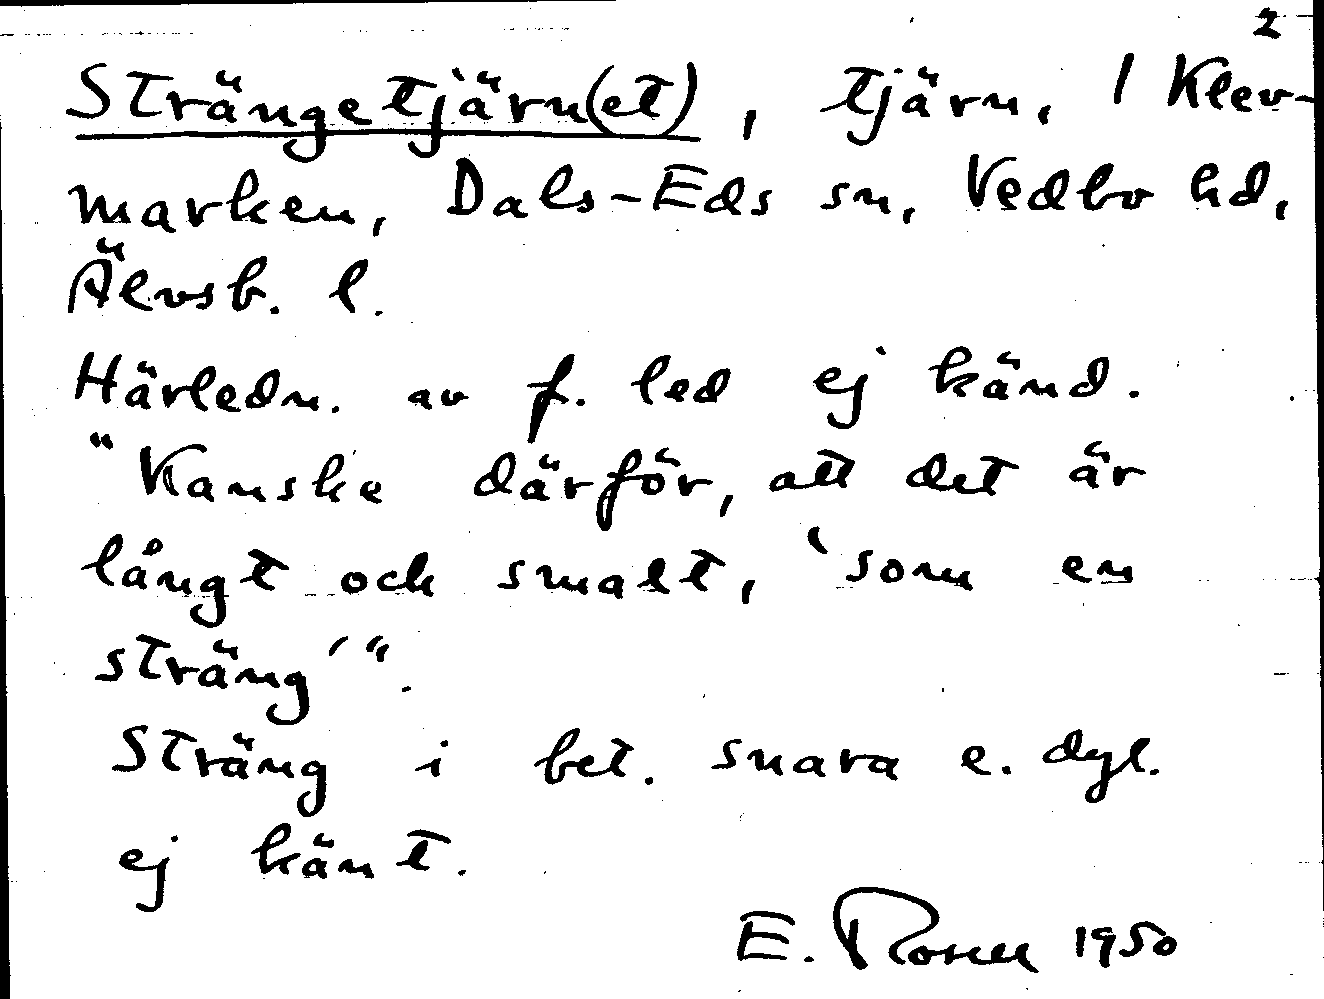 2
Strängetjärn(et), tjärn, 1 Klev-
marken, Dals-Eds sn, Vedbo hd,
Älvsb. l.
Härledn. av f. led ej känd.
"Kanske därför, att det är
långt och smalt, 'som en
sträng'".
Sträng i bet. snara e. dyl.
ej känt.
E. Rosell 1950